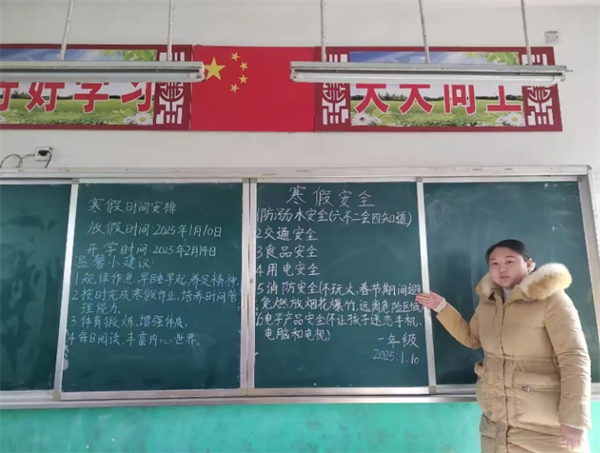 好好学习
天天向上
寒假时间安排
放假时间 2025年1月10日
开学时间 2025年2月14日
温馨小建议
1规律作息,早睡早起养足精神.
2按时完成寒假作业,培养时间管
理能力.
3.体育锻炼,增强体质.
4每日阅读,丰富内心世界.
寒假安全
1防溺水安全(六不二会四知道)
2交通安全
3食品安全
4.用电安全
5消防安全(不玩火,春节期间
免燃放烟花爆竹,远离危险区域
6电子产品安全(不让孩子迷恋手机、
电脑和电视)
一年级
2025.1.10